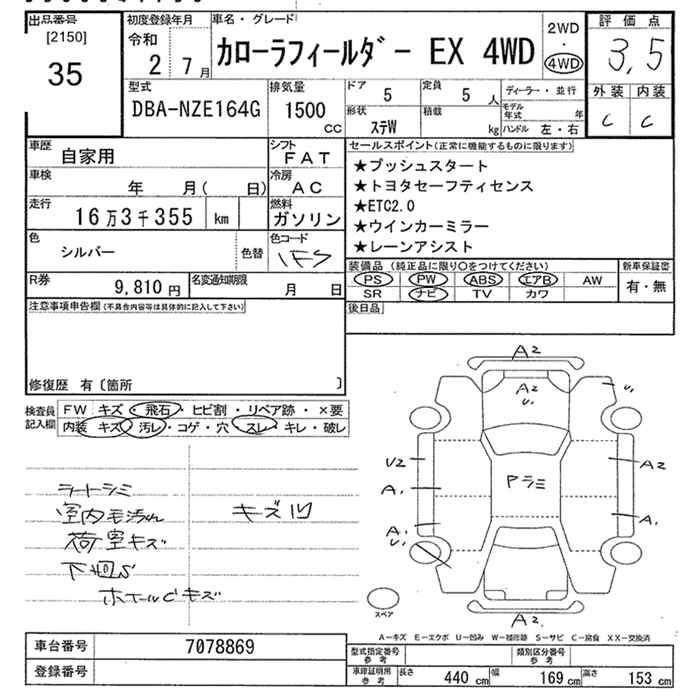 出品番号
[2150]
35
初度登録年月
令和
2 7月
車名・グレード
カローラフィールダー EX 4WD
2WD
・
4WD
評価点
3,5
外装 内装
C C
型式
DBA-NZE164G
排気量
1500
CC
ドア
5
定員
5 人
形状
ステW
積載
kg
ディーラー・並行
モデル年式 年
ハンドル 左・右
車歴
自家用
シフト
FAT
車検
年 月( 日)
冷房
AC
走行
16万3千355 km
燃料
ガソリン
色
シルバー
色替
色コード
1F5
R券
9,810 円
名変通知期限
月 日
セールスポイント(正常に機能するものに限ります)
★プッシュスタート
★トヨタセーフティセンス
★ETC2.0
★ウインカーミラー
★レーンアシスト
装備品 (純正品に限り○をつけてください)
PS PW ABS エアB AW
SR ナビ TV カワ
新車保証書
有・無
後日品
注意事項申告欄(不具合内容等は具体的に記入して下さい)
修復歴 有〔箇所 〕
検査員記入欄
FW キズ・飛石・ヒビ割・リペア跡・×要
内装 キズ・汚レ・コゲ・穴・スレ・キレ・破レ
シートシミ
室内毛汚れ
荷室キズ
キズ凹
下回S
ホイールCキズ
A2
A2
U1
U1
U2
A1
A1
U1
Pラミ
A2
A1
A2
スペア
A-キズ E-エクボ U-凹み W-補修跡 S-サビ C-腐食 XX-交換済
車台番号
7078869
登録番号
型式指定番号
参考
類別区分番号
参考
車庫証明用
参考
長さ 440 cm
幅 169 cm
高さ 153 cm